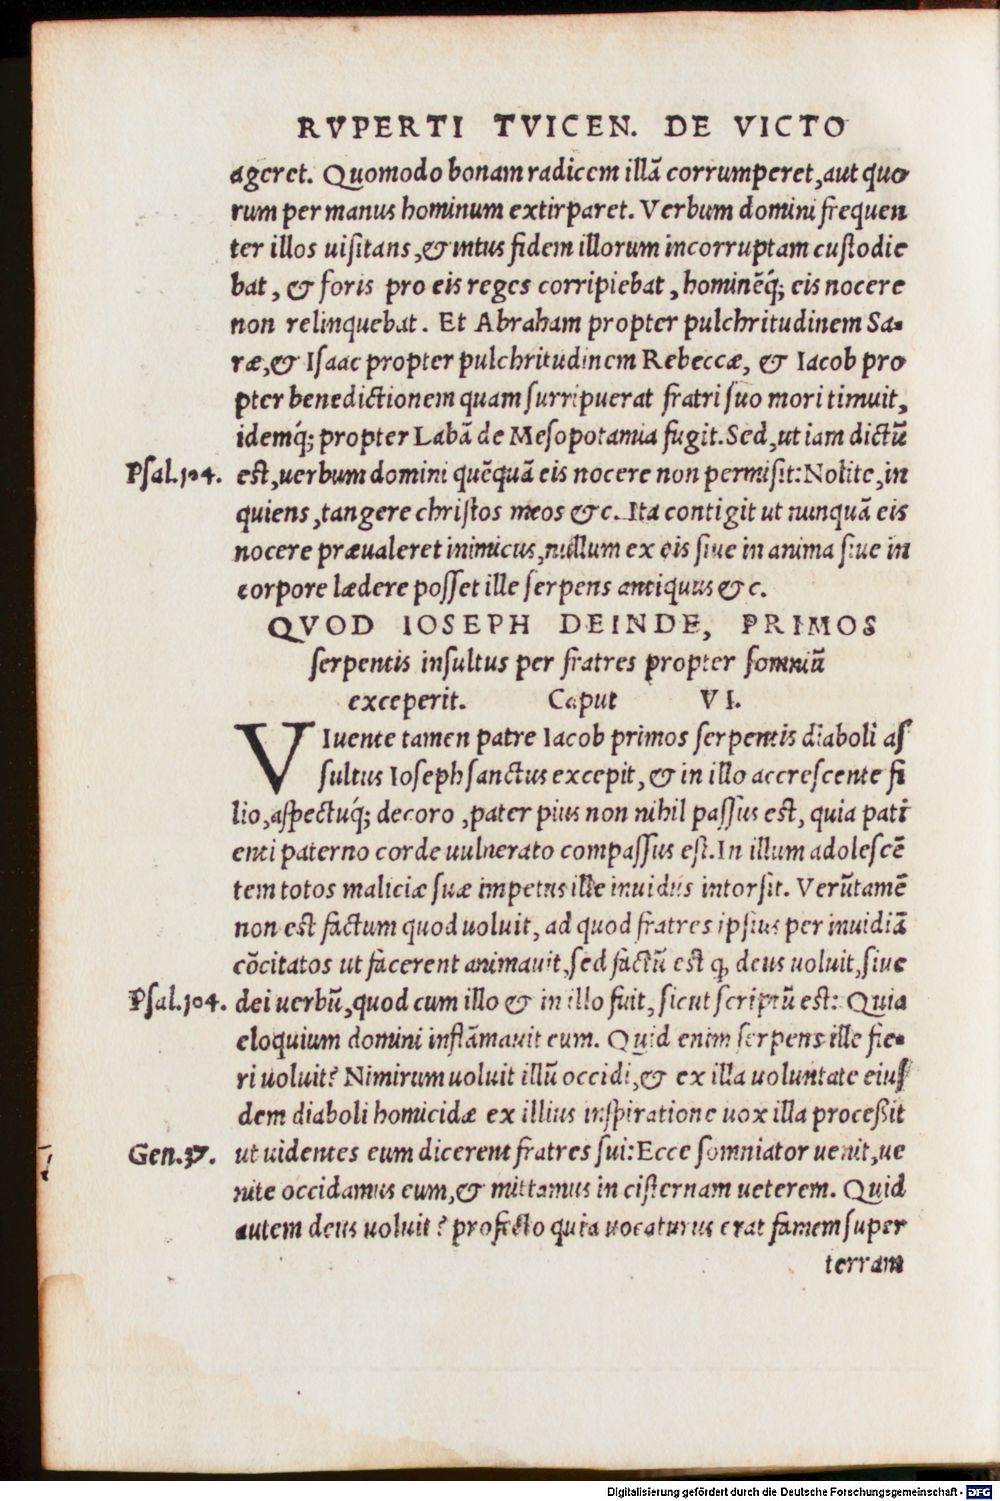 RVPERTI TVICEN. DE VICTO
ageret. Quomodo bonam radicem illã corrumperet, aut quo
rum per manus hominum extirparet. Verbum domini frequen
ter illos uisitans, & intus fidem illorum incorruptam custodie
bat, & foris pro eis reges corripiebat, hominẽq́; eis nocere
non relinquebat. Et Abraham propter pulchritudinem Sa-
ræ, & Isaac propter pulchritudinem Rebeccæ, & Iacob pro
pter benedictionem quam surripuerat fratri suo mori timuit,
idemq́; propter Labã de Mesopotamia fugit. Sed, ut iam dictũ
Psal.104. est, uerbum domini quẽquã eis nocere non permisit: Nolite, in
quiens, tangere christos meos &c. Ita contigit ut nunquã eis
nocere præualeret inimicus, nullum ex eis siue in anima siue in
corpore lædere posset ille serpens antiquus &c.
QVOD IOSEPH DEINDE, PRIMOS
serpentis insultus per fratres propter somniũ
exceperit. Caput VI.
VIuente tamen patre Iacob primos serpentis diaboli as
sultus Ioseph sanctus excepit, & in illo accrescente fi
lio, aspectuq́; decoro, pater pius non nihil passus est, quia pati
enti paterno corde uulnerato compassus est. In illum adolescẽ
tem totos maliciæ suæ impetus ille inuidus intorsit. Verũtamẽ
non est factum quod uoluit, ad quod fratres ipsius per inuidiã
cõcitatos ut facerent animauit, sed factũ est ꝙ deus uoluit, siue
Psal.104. dei uerbũ, quod cum illo & in illo fuit, sicut scriptũ est: Quia
eloquium domini inflãmauit eum. Quid enim serpens ille fie-
ri uoluit? Nimirum uoluit illũ occidi, & ex illa uoluntate eius
dem diaboli homicidæ ex illius inspiratione uox illa processit
Gen.37. ut uidentes eum dicerent fratres sui: Ecce somniator uenit, ue
nite occidamus eum, & mittamus in cisternam ueterem. Quid
autem deus uoluit? profecto quia uocaturus erat famem super
terram
Digitalisierung gefördert durch die Deutsche Forschungsgemeinschaft - DFG